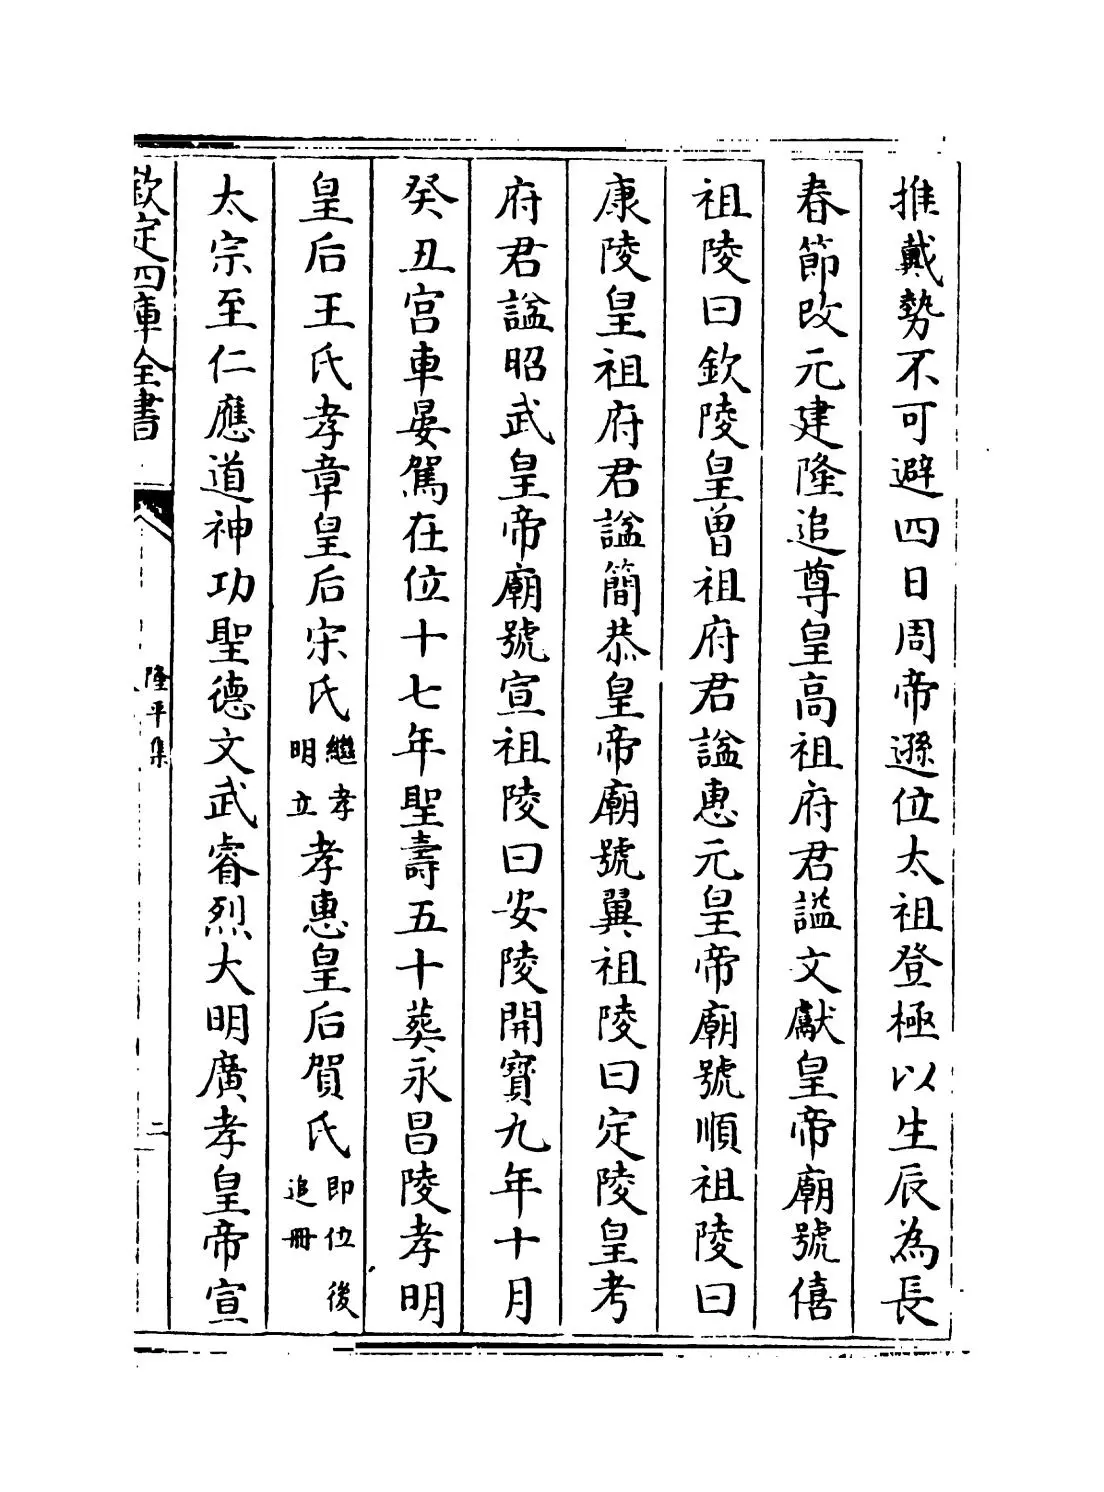 推戴勢不可避四日周帝遜位太祖登極以生辰為長
春節改元建隆追尊皇高祖府君謚文獻皇帝廟號僖
祖陵曰欽陵皇曾祖府君謚惠元皇帝廟號順祖陵曰
康陵皇祖府君謚簡恭皇帝廟號翼祖陵曰定陵皇考
府君謚昭武皇帝廟號宣祖陵曰安陵開寶九年十月
癸丑宮車晏駕在位十七年聖壽五十葬永昌陵孝明
皇后王氏孝章皇后宋氏繼孝明立孝惠皇后賀氏即位後追冊
太宗至仁應道神功聖德文武睿烈大明廣孝皇帝宣
欽定四庫全書
隆平集
二